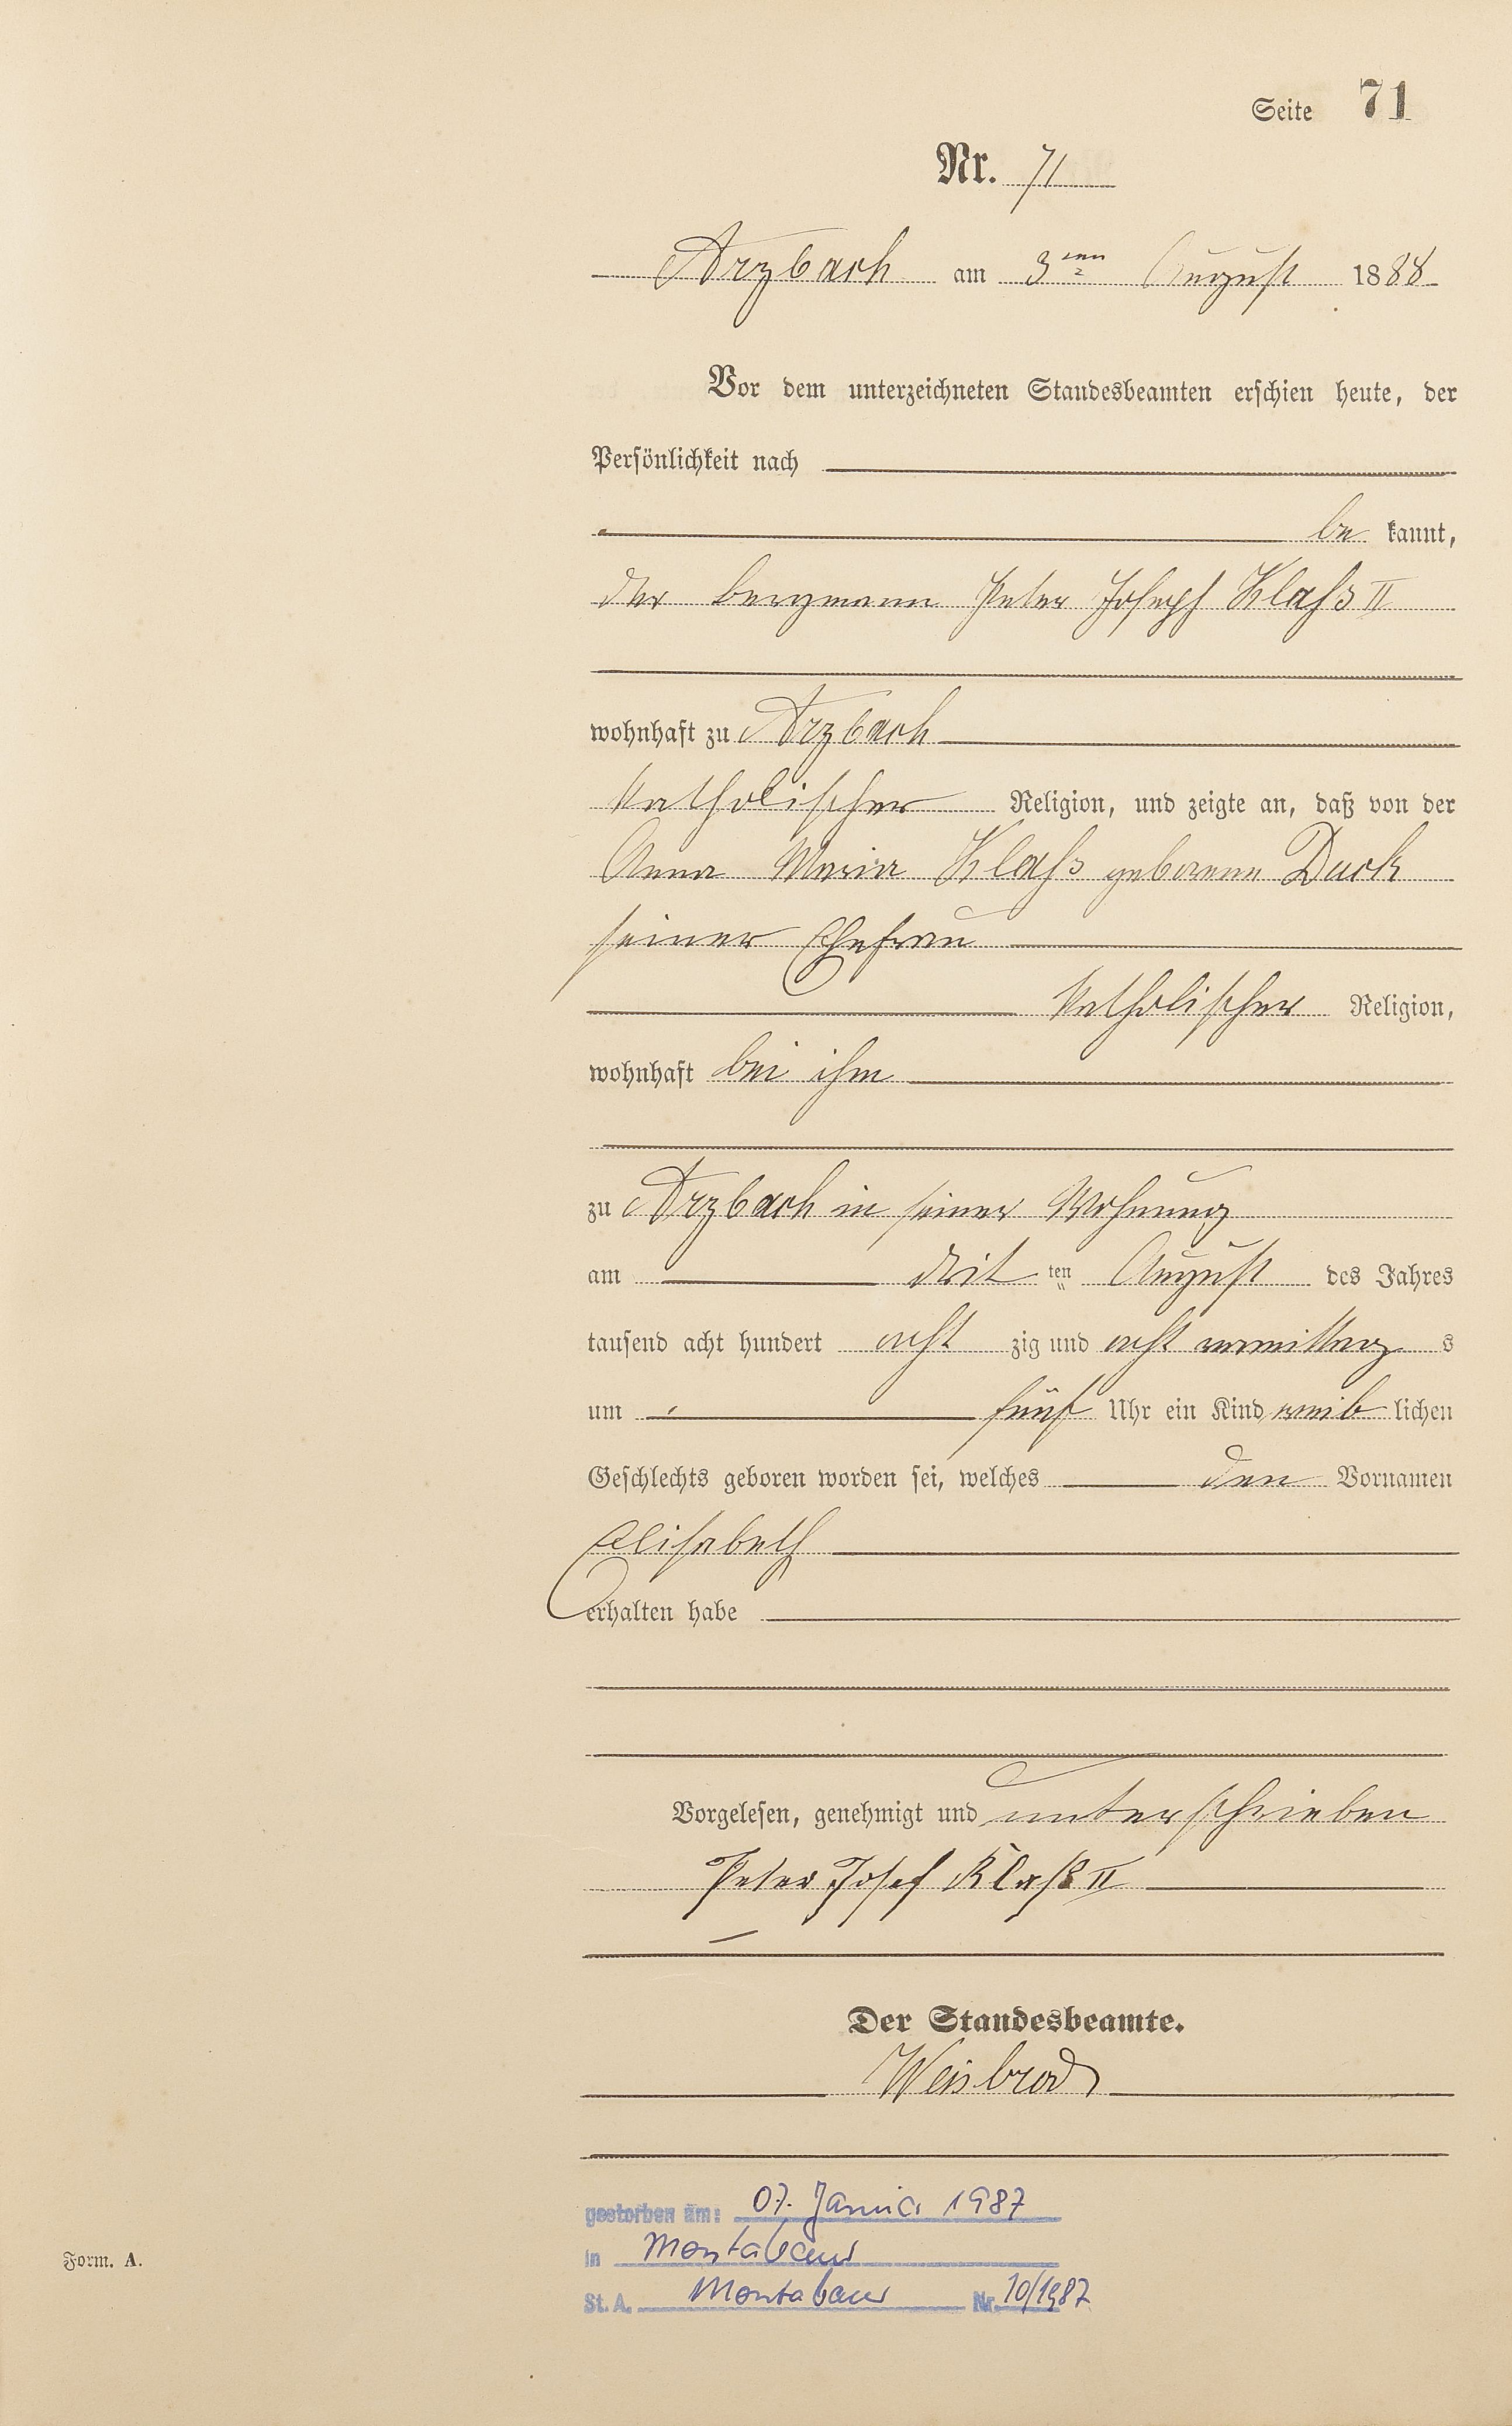 Seite 71
Nr. 71
Arzbach am 3ten August 1888
Vor dem unterzeichneten Standesbeamten erschien heute, der
Persönlichkeit nach
be kannt,
der Bergmann Peter Joseph Klaß II
wohnhaft zu Arzbach
katholischer Religion, und zeigte an, daß von der
Anna Maria Klaß geborene Duck
seiner Ehefrau
katholischer Religion,
wohnhaft bei ihm
zu Arzbach in seiner Wohnung
am drit ten August des Jahres
tausend acht hundert acht zig und acht vormittag s
um fünf Uhr ein Kind weib lichen
Geschlechts geboren worden sei, welches den Vornamen
Elisabeth
erhalten habe
Vorgelesen, genehmigt und unterschrieben
Peter Josef Klaß II
Der Standesbeamte.
Weisbrod
gestorben am: 07. Januar 1987
in Montabaur
St. A. Montabaur Nr. 10/1987
Form. A.